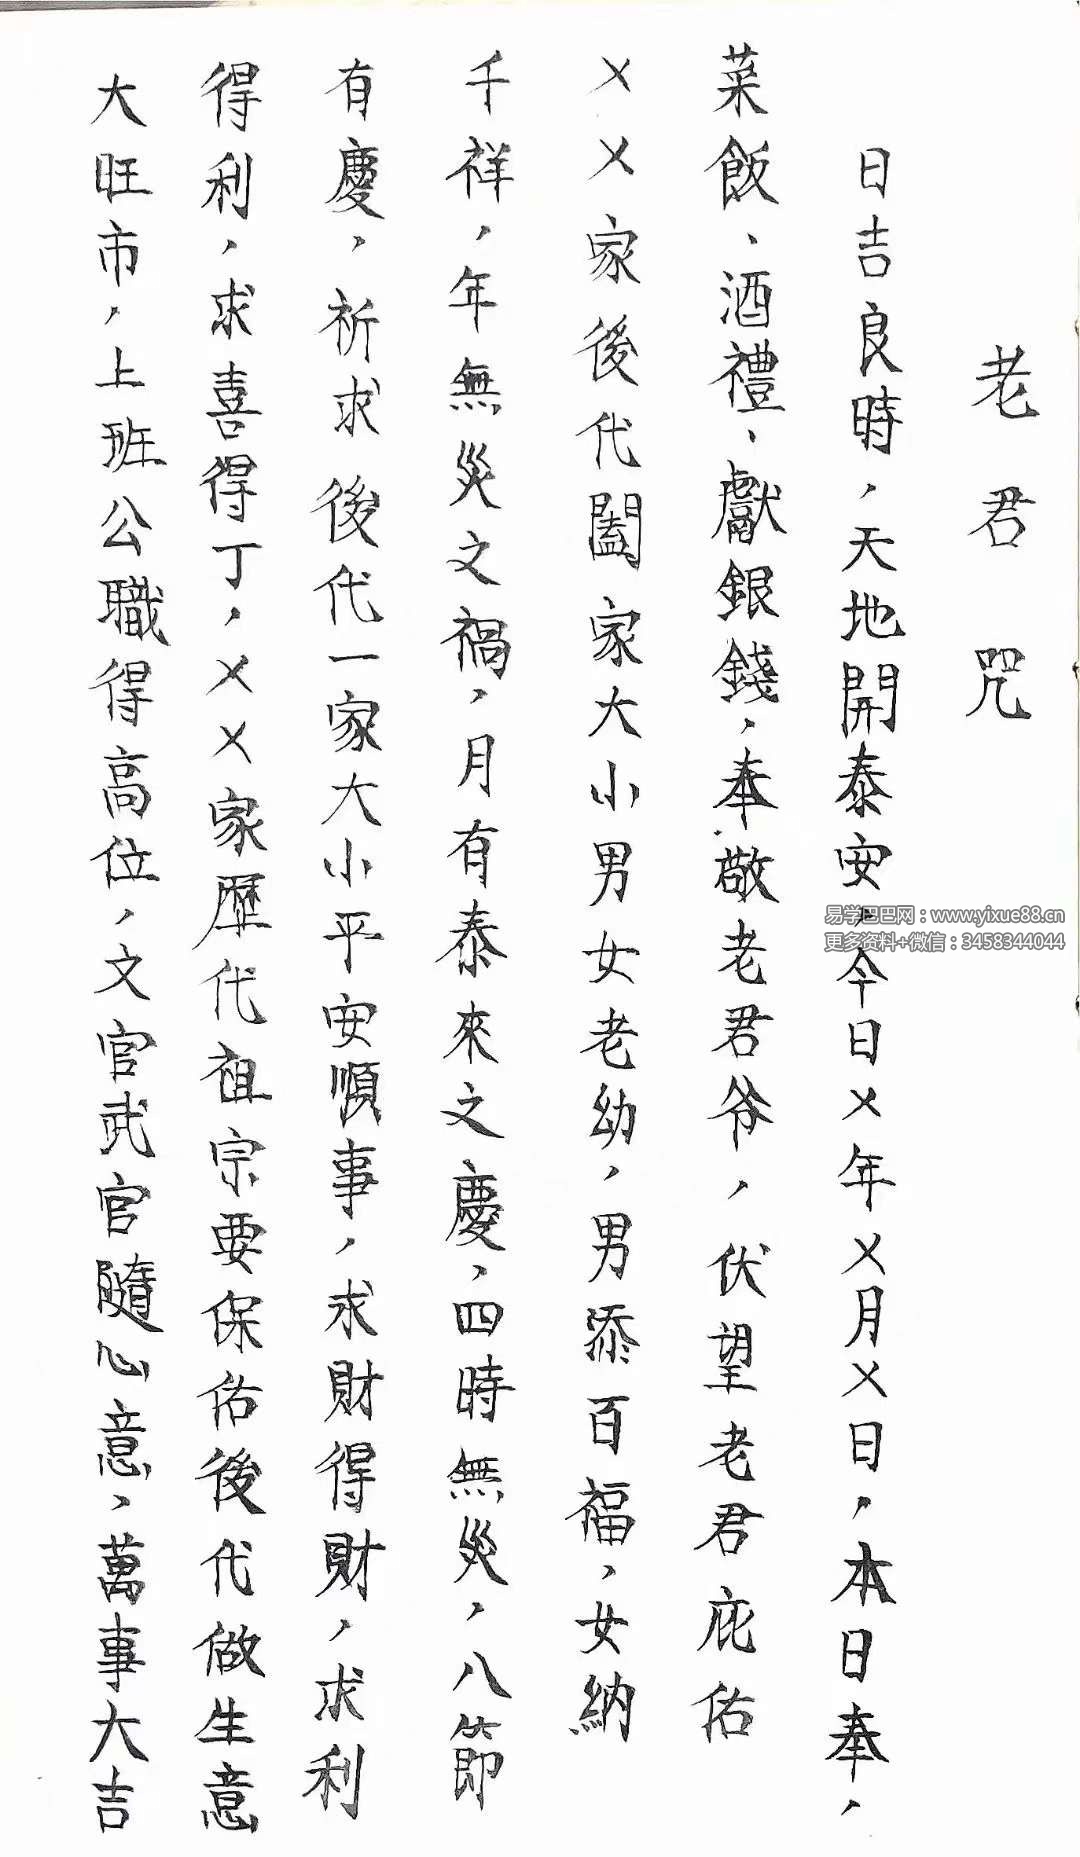 老君咒
日吉良時，天地開泰安，今日㐅年㐅月㐅日，本日奉，
菜飯、酒禮、獻銀錢，奉敬老君爷，伏望老君庇佑
㐅㐅家後代闔家大小男女老幼，男添百福，女納
千祥，年無災之禍，月有泰來之慶，四時無災，八節
有慶，祈求後代一家大小平安順事，求財得財，求利
得利，求喜得丁，㐅㐅家歷代祖宗要保佑後代做生意
大旺市，上班公職得高位，文官武官隨心意，萬事大吉
易学巴巴网：www.yixue88.cn
更多资料+微信：3458344044